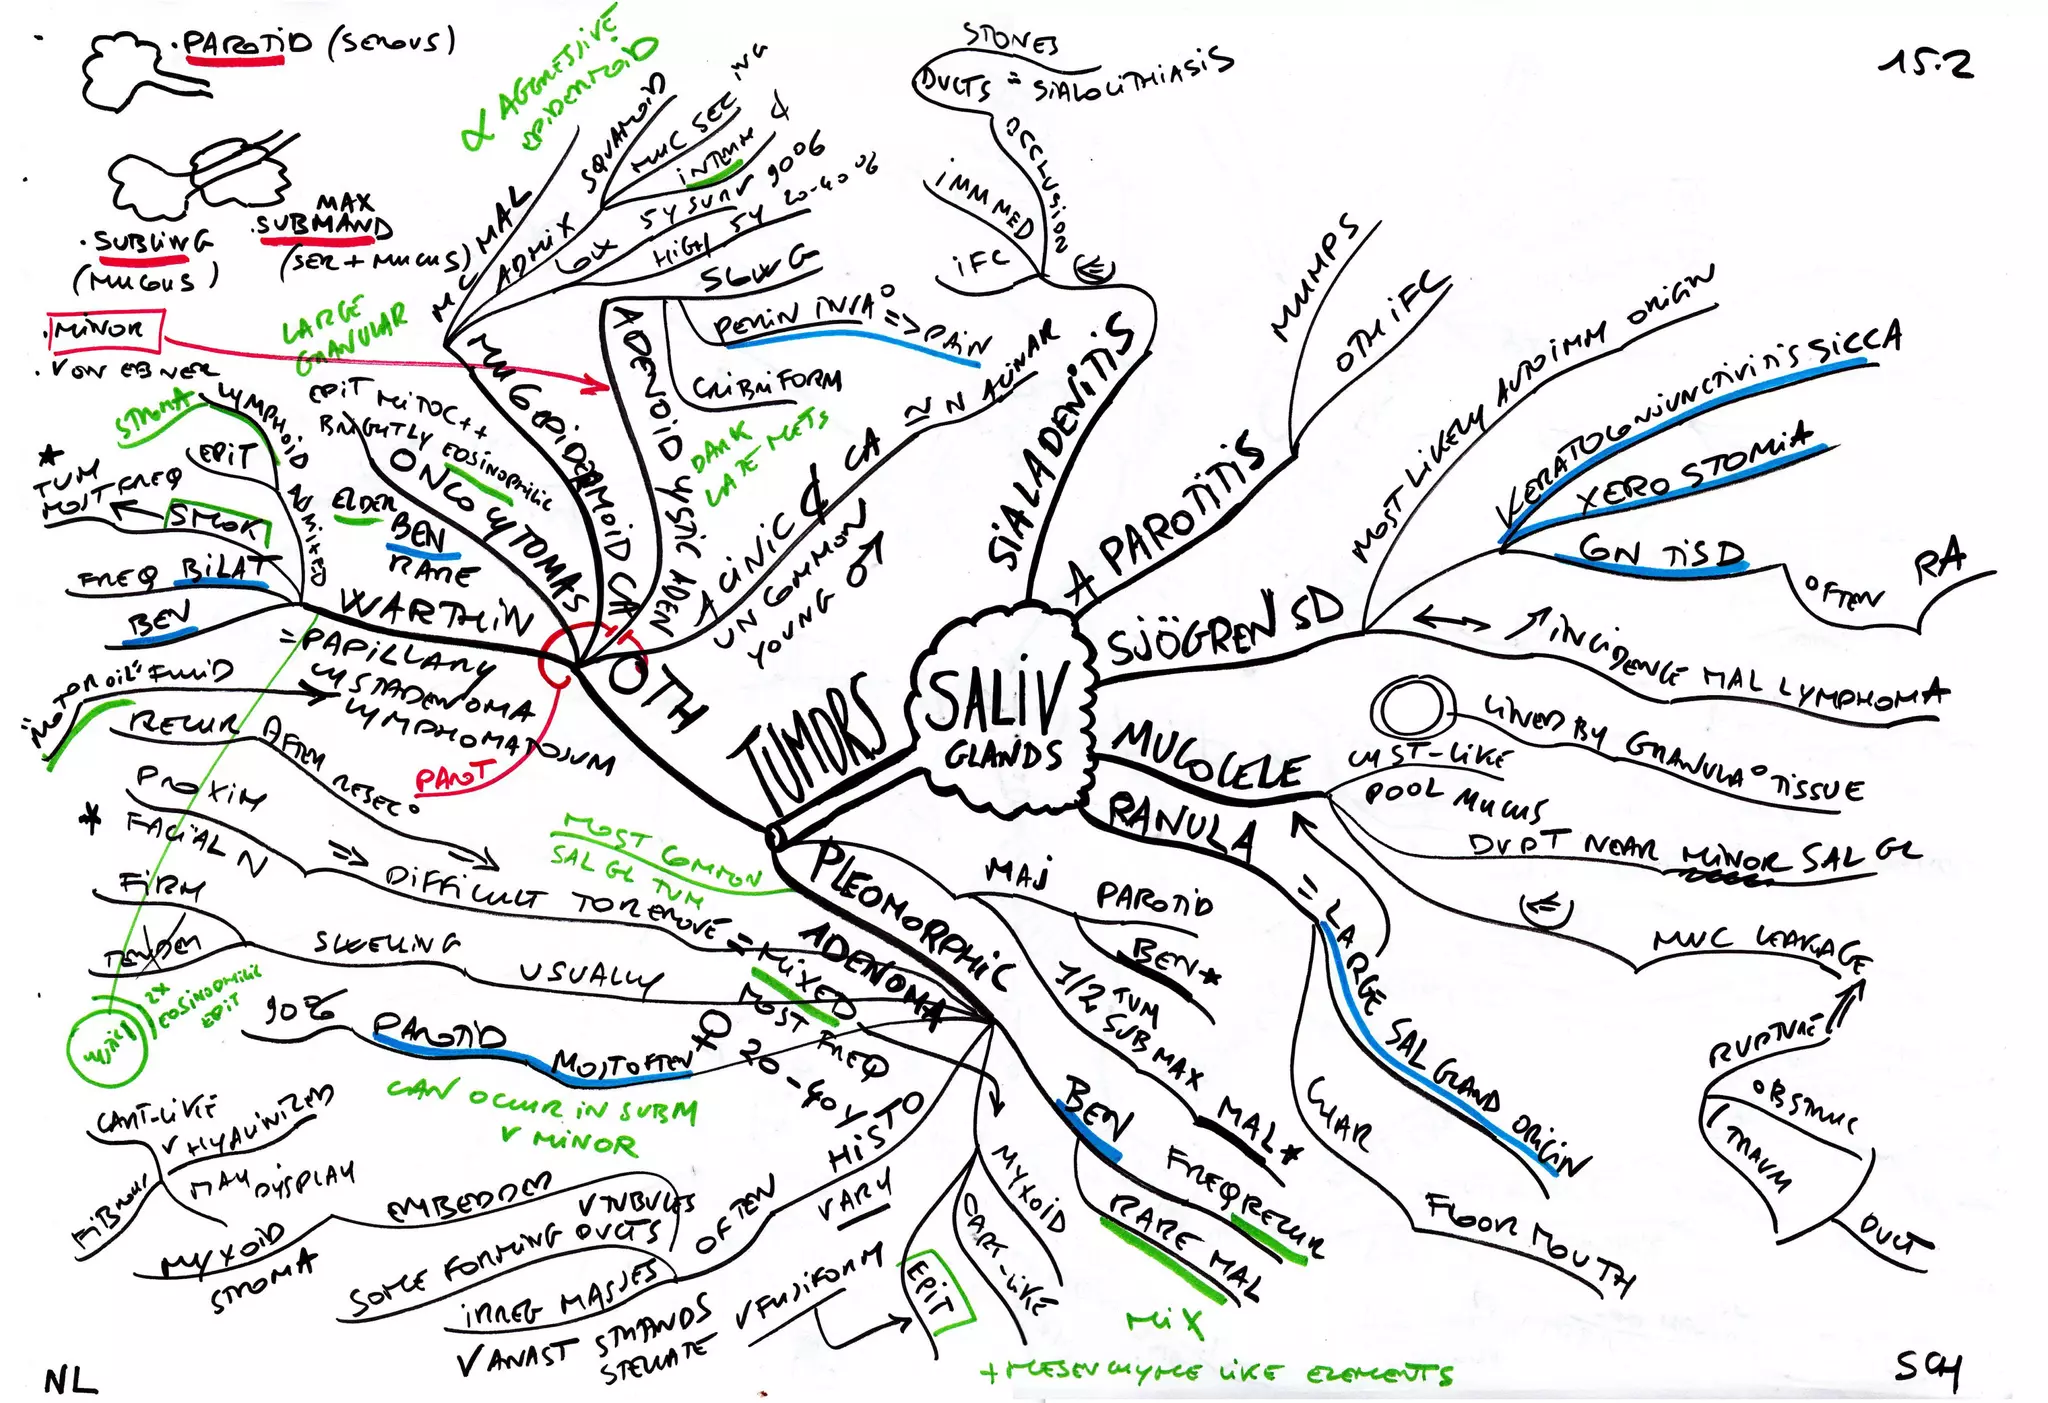 15.2
. PAROTID (SEROUS)
MAX
. SUBMAND
(SER + MUCUS)
. SUBLING
(MUCOUS)
. MINOR
. VON EBNER
SALIV
GLANDS
SIALADENITIS
(⇐)
IFC
IMMED
OCCLUSION
DUCTS = SIALOLITHIASIS
STONES
A PAROTITIS
MUMPS
OTH IFC
SJÖGREN SD
MOST LIKELY AUTOIMM ORIGIN
KERATOCONJUNCTIVITIS SICCA
XEROSTOMIA
CN TIS D
OFTEN
RA
↔ ↗ INCIDENCE MAL LYMPHOMA
MUCOCELE
LINED BY GRANULA° TISSUE
CYST-LIKE
POOL MUCUS
DVPT NEAR MINOR SAL GL
(⇐)
MUC LEAKAGE
RUPTURE
OBSTRUC
TRAUM
DUCT
RANULA
= LARGE SAL GLAND ORIGIN
CHAR
FLOOR MOUTH
TUMORS
MAJ
PAROTID
BEN *
1/2 TUM
SUBMAX
MAL *
PLEOMORPHIC
ADENOMA
= MIXED
MOST FREQ
♀
20-40Y
MOST COMMON
SAL GL TUM
BEN
FREQ RECUR
RARE MAL
MIX
+ MESENCHYME LIKE ELEMENTS
MYXOID
CART-LIKE
EPIT
HISTO
VARY
OFTEN
V TUBULES
SOME FORMING DUCTS
IRREG MASSES
V ANAST STRANDS
STELLATE
V FUSIFORM
EMBEDDED
MYXOID
STROMA
MAY DISPLAY
V HYALINIZED
CART-LIKE
FIBROUS
90%
PAROTID
MOST OFTEN
CAN OCCUR IN SUBM
V MINOR
USUALLY
SWELLING
FIRM
TENDER
* FACIAL N
PROXIM
⇒ DIFFICULT TO REMOVE
RECUR AFTER RESEC°
OTH
PAROT
WARTHIN
= PAPILLARY
CYSTADENOMA
LYMPHOMATOSUM
"MOTOR OIL" FLUID
BEN
FREQ BILAT
SMOK
*
TUM
MOST FREQ
ADMIXED
EPIT
LYMPHOID
STROMA
2X
EOSINOPHILIC
EPIT
ONCOCYTOMAS
EPIT MITOC++
BRIGHTLY EOSINOPHILIC
LARGE
GRANULAR
ELDER
BEN
RARE
MUCOEPIDERMOID CA
MC MAL
ADMIX
SQUAMOID
MUC SECING
INTERM ¢
LOW 5Y SURV 90%
HIGH 5Y 20-40%
α AGGRESSIVE
EPIDERMOID
ADENOID CYSTIC ADEN
SLOWG
PERIN INVA° => PAIN
CRIBRIFORM
DARK
LATE METS
ACINIC ¢ CA
≃ N ACINAR
UNCOMMON
YOUNG ♂
NL
SCH